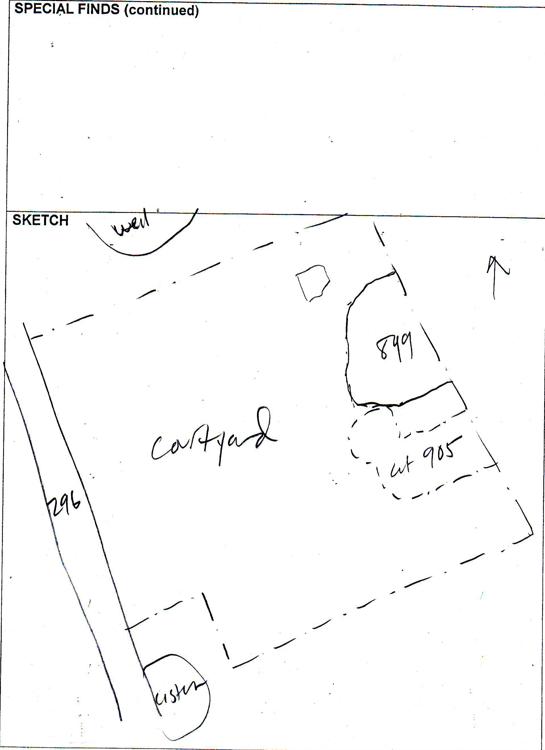 SPECIAL FINDS (continued)
SKETCH
well
899
courtyard
cut 905
296
cistern